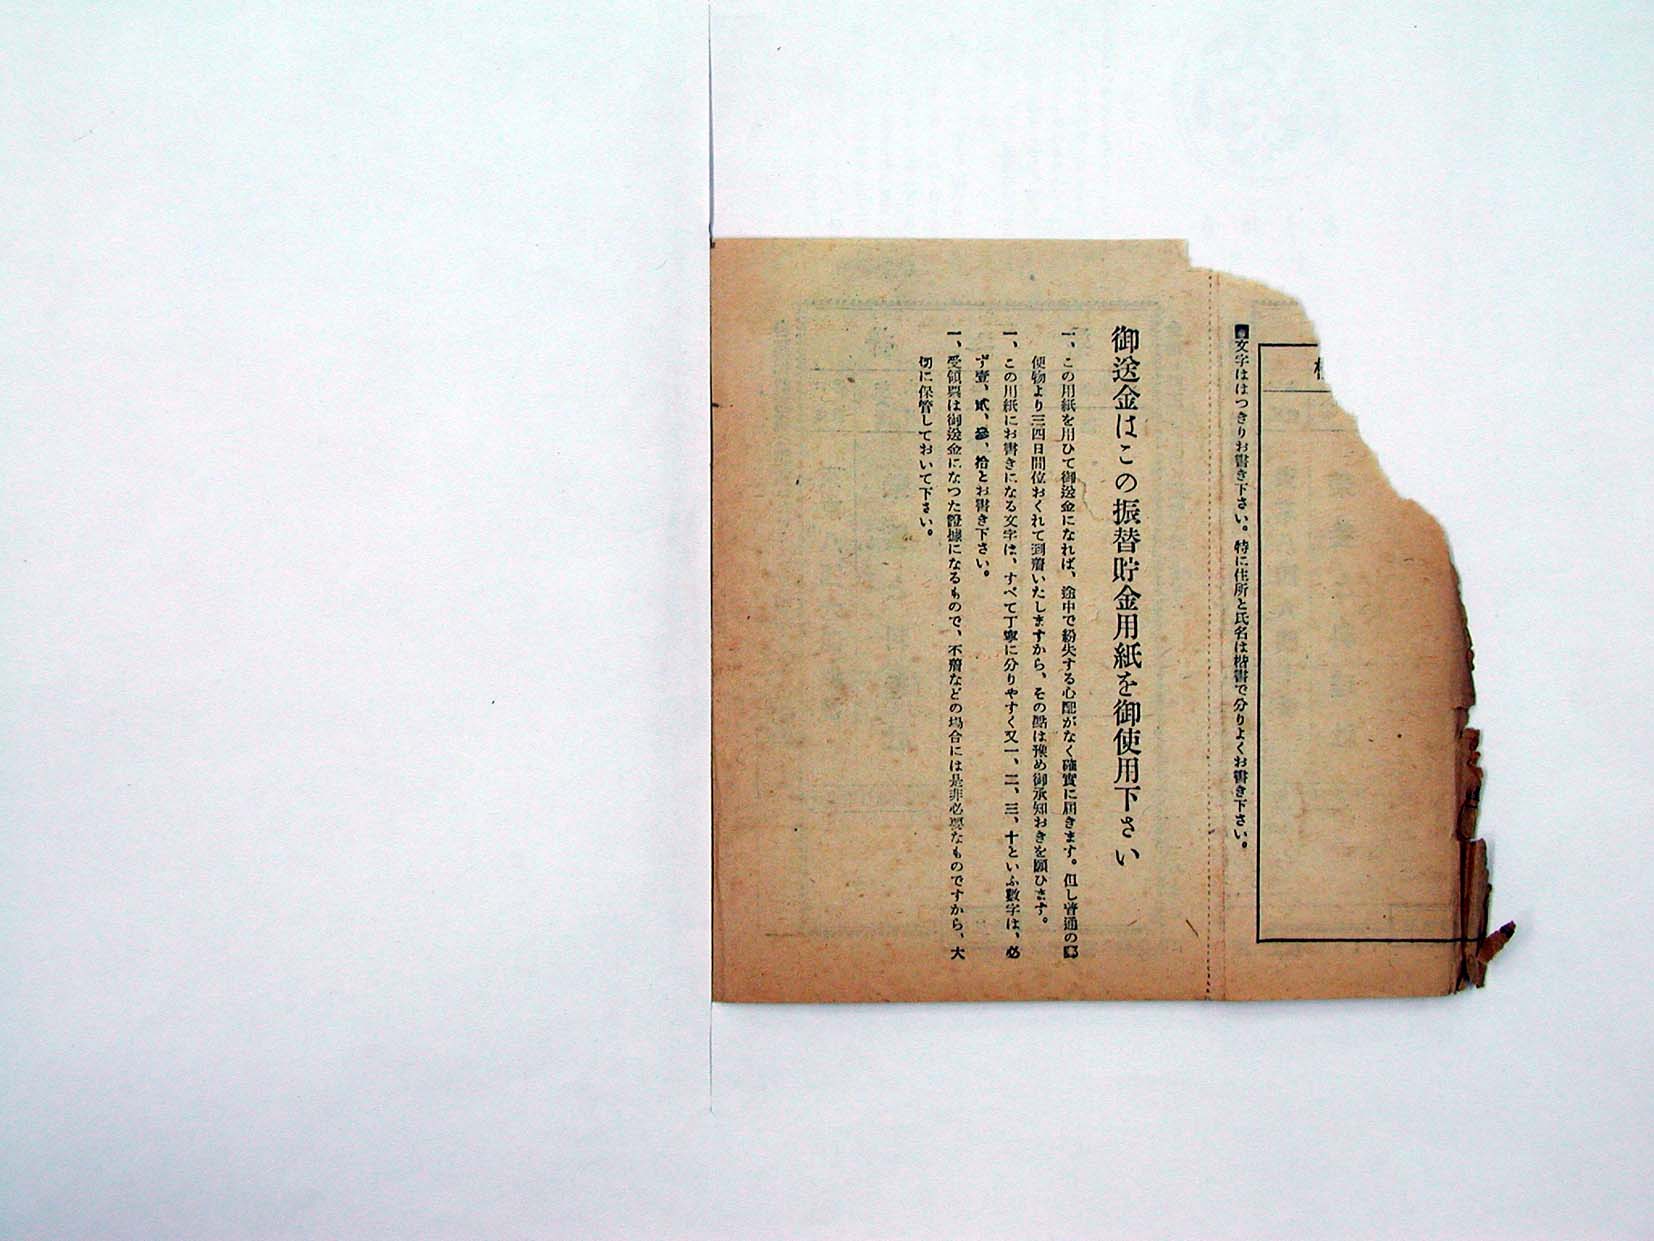 ■文字ははつきりお書き下さい。特に住所と氏名は楷書で分りよくお書き下さい。
御送金はこの振替貯金用紙を御使用下さい
一、この用紙を用ひて御送金になれば、途中で紛失する心配がなく確實に屆きます。但し普通の郵
便物より三四日間位おくれて到着いたしますから、その點は豫め御承知おきを願ひます。
一、この用紙にお書きになる文字は、すべて丁寧に分りやすく又一、二、三、十といふ數字は、必
ず壹、貳、參、拾とお書き下さい。
一、受領票は御送金になつた證據になるもので、不着などの場合には是非必要なものですから、大
切に保管しておいて下さい。